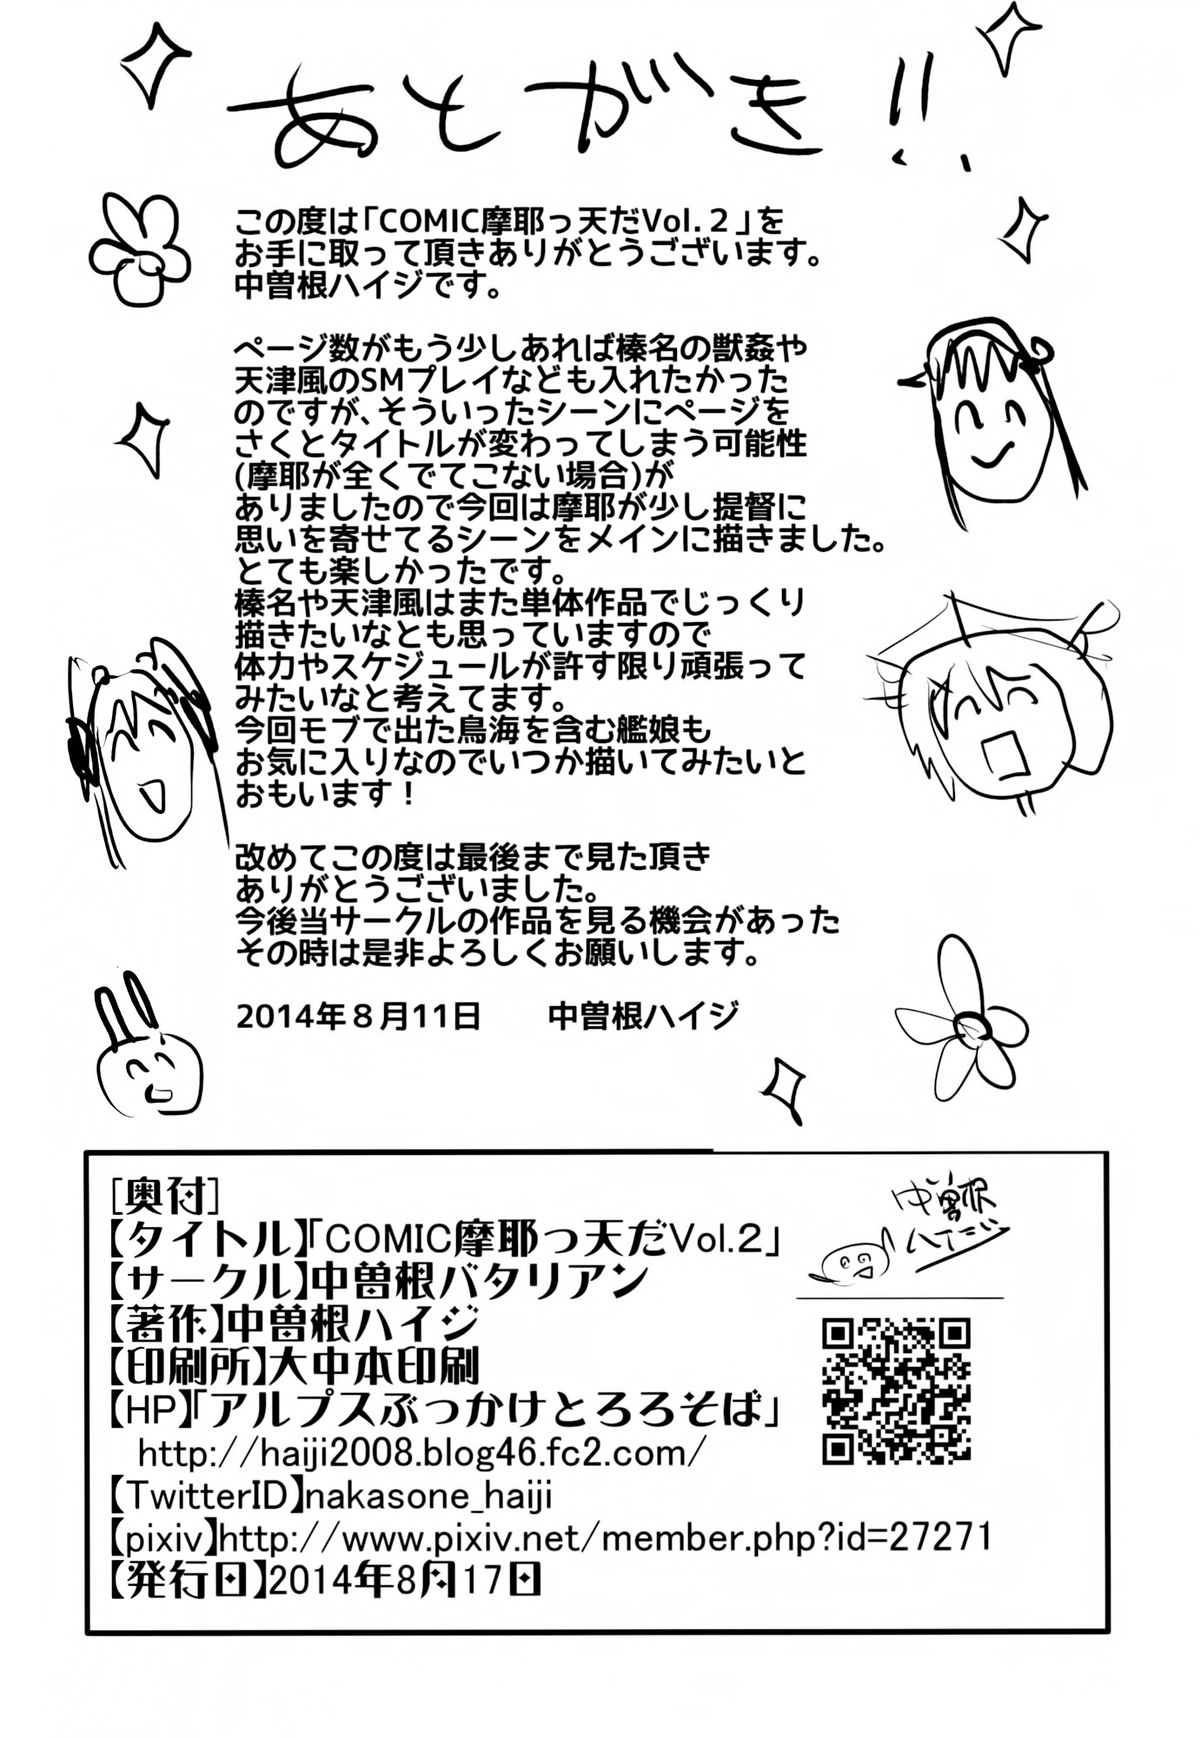 あとがき!!
この度は「COMIC摩耶っ天だVol.２」を
お手に取って頂きありがとうございます。
中曽根ハイジです。
ページ数がもう少しあれば榛名の獣姦や
天津風のSMプレイなども入れたかった
のですが、そういったシーンにページを
さくとタイトルが変わってしまう可能性
(摩耶が全くでてこない場合)が
ありましたので今回は摩耶が少し提督に
思いを寄せてるシーンをメインに描きました。
とても楽しかったです。
榛名や天津風はまた単体作品でじっくり
描きたいなとも思っていますので
体力やスケジュールが許す限り頑張って
みたいなと考えてます。
今回モブで出た鳥海を含む艦娘も
お気に入りなのでいつか描いてみたいと
おもいます！
改めてこの度は最後まで見た頂き
ありがとうございました。
今後当サークルの作品を見る機会があった
その時は是非よろしくお願いします。
2014年８月11日　　中曽根ハイジ
[奥付]
【タイトル】「COMIC摩耶っ天だVol.2」
【サークル】中曽根バタリアン
【著作】中曽根ハイジ
【印刷所】大中本印刷
【HP】「アルプスぶっかけとろろそば」
http://haiji2008.blog46.fc2.com/
【TwitterID】nakasone_haiji
【pixiv】http://www.pixiv.net/member.php?id=27271
【発行日】2014年8月17日
中曽根
ハイジ